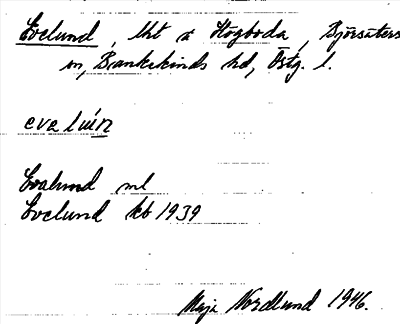 Evelund, lht å Högboda, Björsäters
sn, Bankekinds hd, Östg. l.
eveluńn
Evalund ml
Evelund kb 1939
Maja Nordlund 1946.